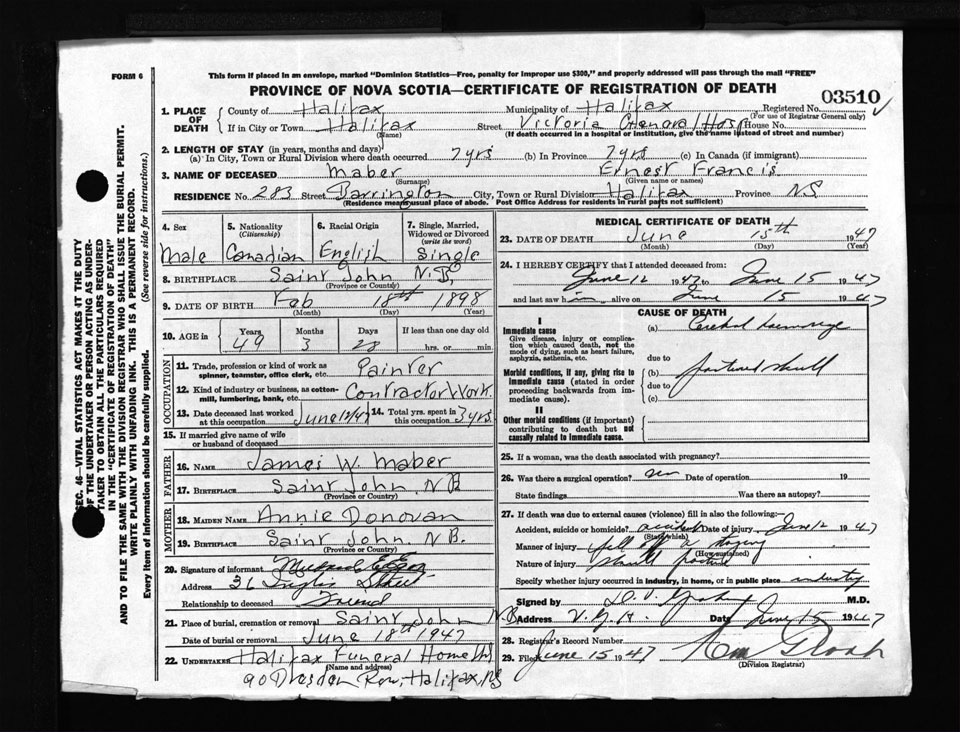 FORM 6
This form if placed in an envelope, marked "Dominion Statistics—Free, penalty for improper use $300," and properly addressed will pass through the mail "FREE"
PROVINCE OF NOVA SCOTIA—CERTIFICATE OF REGISTRATION OF DEATH
03510
1. PLACE OF DEATH County of Halifax Municipality of Halifax Registered No.
(For use of Registrar General only)
If in City or Town Halifax Street Victoria General Hosp House No.
(Name) (If death occurred in a hospital or institution, give the name instead of street and number)
2. LENGTH OF STAY (in years, months and days)
(a) In City, Town or Rural Division where death occurred 7 yrs (b) In Province 7 yrs (c) In Canada (if immigrant)
3. NAME OF DECEASED Maber Ernest Francis
(Surname) (Given name or names)
RESIDENCE No. 283 Street Barrington City, Town or Rural Division Halifax Province NS
(Residence means usual place of abode. Post Office Address for residents in rural parts not sufficient)
4. Sex
Male
5. Nationality
(Citizenship)
Canadian
6. Racial Origin
English
7. Single, Married, Widowed or Divorced
(write the word)
Single
8. BIRTHPLACE Saint John N.B.
(Province or County)
9. DATE OF BIRTH Feb 18th 1898
(Month) (Day) (Year)
10. AGE in Years Months Days If less than one day old
49 3 28 hrs. or min.
OCCUPATION
11. Trade, profession or kind of work as spinner, teamster, office clerk, etc. Painter
12. Kind of industry or business, as cotton-mill, lumbering, bank, etc. Contractor Work.
13. Date deceased last worked at this occupation June 12/47 14. Total yrs. spent in this occupation 3 yrs.
15. If married give name of wife or husband of deceased
FATHER
16. NAME James W. Maber
17. BIRTHPLACE Saint John, N B
(Province or Country)
MOTHER
18. MAIDEN NAME Annie Donovan
19. BIRTHPLACE Saint John. N B.
(Province or Country)
20. Signature of informant
Address 36 Inglis Street
Relationship to deceased Friend
21. Place of burial, cremation or removal Saint John N.B.
Date of burial or removal June 18th 1947
22. UNDERTAKER Halifax Funeral Home
(Name and address)
90 Dresden Row, Halifax, NS
MEDICAL CERTIFICATE OF DEATH
23. DATE OF DEATH June 15th 1947
(Month) (Day) (Year)
24. I HEREBY CERTIFY that I attended deceased from:
June 12 1947 to June 15 1947
and last saw him alive on June 15 1947
CAUSE OF DEATH
I
Immediate cause
Give disease, injury or complication which caused death, not the mode of dying, such as heart failure, asphyxia, asthenia, etc.
(a) Cerebral haemorrage
due to
Morbid conditions, if any, giving rise to immediate cause (stated in order proceeding backwards from immediate cause).
(b) fractured skull
due to
(c)
II
Other morbid conditions (if important) contributing to death but not causally related to immediate cause.
25. If a woman, was the death associated with pregnancy?
26. Was there a surgical operation? Date of operation 19
State findings Was there an autopsy?
27. If death was due to external causes (violence) fill in also the following:
Accident, suicide or homicide? accident Date of injury June 12 1947
(State which)
Manner of injury fell off a staging
(How sustained)
Nature of injury skull fracture
Specify whether injury occurred in industry, in home, or in public place industry
Signed by M.D.
Address V.G.H. Date June 15 1947
28. Registrar's Record Number
29. Filed June 15 1947
(Division Registrar)
SEC. 46—VITAL STATISTICS ACT MAKES IT THE DUTY
OF THE UNDERTAKER OR PERSON ACTING AS UNDER-
TAKER TO OBTAIN ALL THE PARTICULARS REQUIRED
IN THE "CERTIFICATE OF REGISTRATION OF DEATH"
AND TO FILE THE SAME WITH THE DIVISION REGISTRAR WHO SHALL ISSUE THE BURIAL PERMIT.
WRITE PLAINLY WITH UNFADING INK. THIS IS A PERMANENT RECORD.
Every item of information should be carefully supplied. (See reverse side for instructions.)